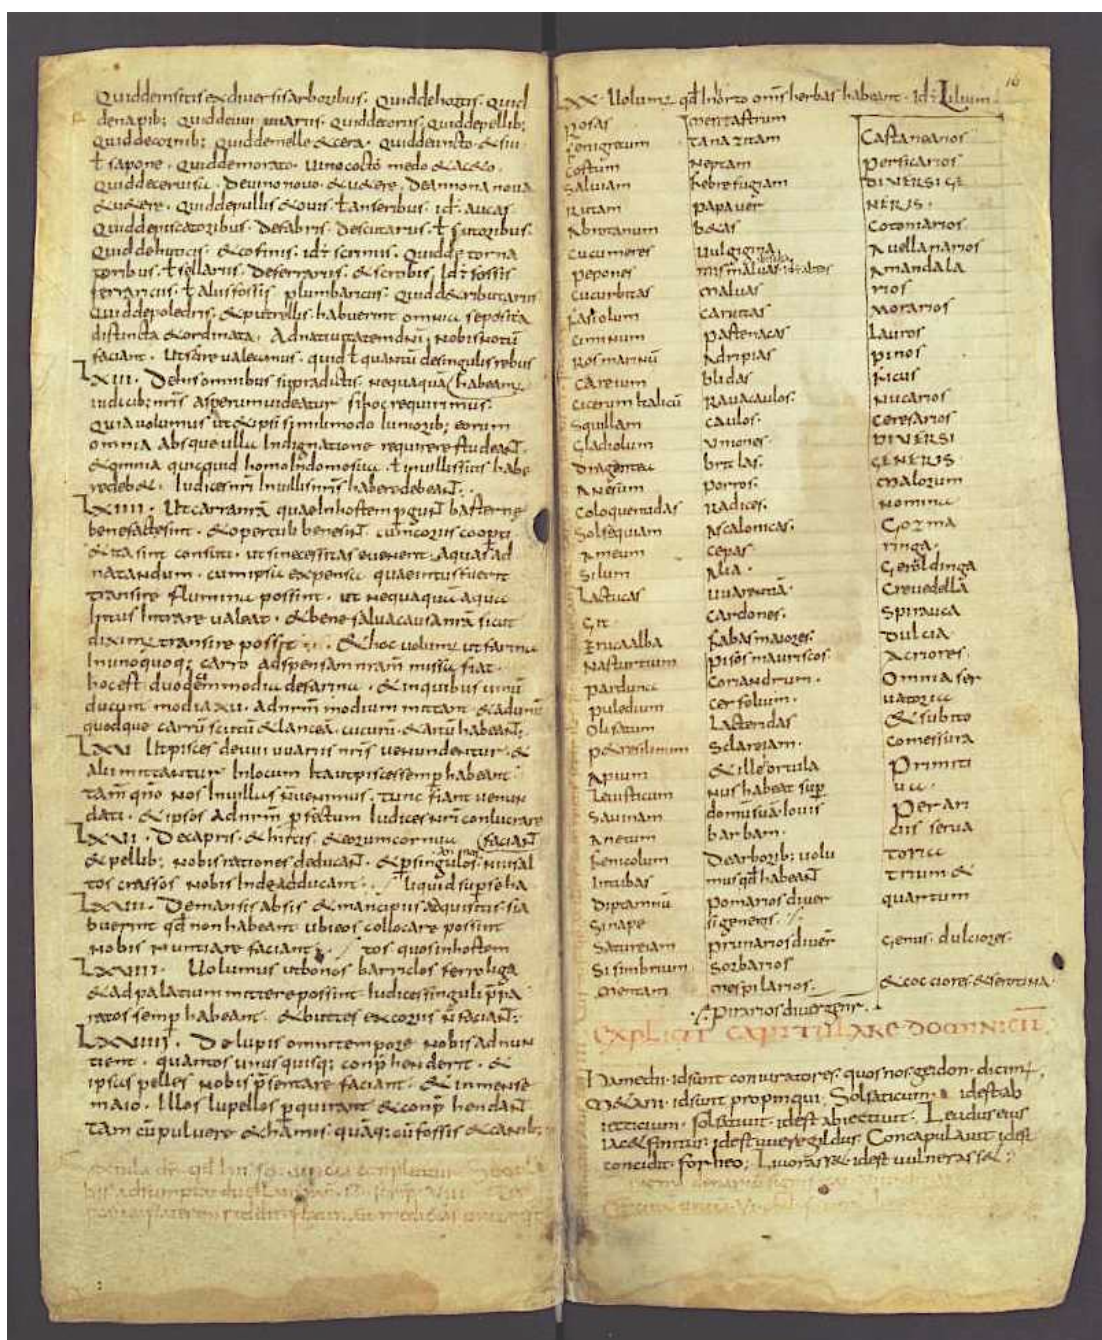 Quiddeinsitis exdiversisarboribus. Quiddehortis. Quid
denapib; Quiddeuiuuariis. Quiddecoriis. Quiddepellib;
Quiddecornib; Quiddemelle &cera. Quiddeuncto. &siu
ł sapone. Quiddemorato. Uinococto medo &aceto.
Quiddeceruisa. Deuinonouo. &u&ere. Deannona noua
&u&ere. Quiddepullis &ouis. ł anseribus. id÷ aucas
Quiddepiscatoribus. Defabris. Descutariis. ł sutoribus.
Quiddehuticis. &cofinis. id÷ scriniis. Quidde torna
toribus. ł sellariis. Deferrariis. &scrobis. Id÷ fossis
ferraricus. ł aliisfossis plumbaricus. Quidde tributariis
Quiddepoledris. &putrellis. habuerint omnia seposita
distincta &ordinata. Adnatiuitatemdni. Nobis Notū
faciant. Utscire ualeamus. quid ł quantū desingulis rebus
LXIII. Dehisomnibus supradictis. Nequaquā (habeam;
iudicib; nr̄is asperumuideatur sihocrequirimus.
Quiauolumus ut &ipsi similimodo iuniorib; eorum
omnia absque ulla Indignatione requirere studeant
&omnia quicquid homo Indomosua. ł inuillissuis habe
redeb&. Iudices nr̄i Inuillis nr̄is haberedebeant.
LXIIII. Utcarranr̄a quae Inhostem pgunt basterne
benefactesint. &operculi benesint cūcoriis cooperti
&ita sint consuti. utsinecessitas euenerit. Aquas ad
natandum. cumipsa expensa quaeintusfuerit
transire flumina possint. ut nequaquā aqua
Intus Intrare ualeat. &bene saluacausa nr̄a sicut
diximus transire possit. &hoc uolumus utfarina
Inunoquoq; carro adspensam nr̄am missa fiat.
hocest duodecim modia defarina. &inquibus uinū
ducunt modiaXII. Adnr̄m modium mittant. &adunū
quodque carrū scutū &lanceā. cucurū &arcū habeant.
LXV. Utpisces deuiuuariis nr̄is uenundentur. &
alii mittantur Inlocum Itautpisces semp habeant
tam̄ qn̄o nos Inuillas n̄uenimus. tunc fiant uenun
dati. &ipsos adnr̄m pfectum Iudices nr̄i conlucrare
LXVI. Decapris. &hircis. &eorumcornua (faciant
&pellib; Nobis rationes deducant. &psingulos annos
tos crassos Nobis Inde adducant. / liquid superha
LXVII. Demansis absis &mancipiis adquisitis. sia
buerint qd̄ non habeant ubieos collocare possint
Nobis Nuntiare faciant. / tos quosinhostem
LXVIII. Uolumus utbonos barriclos ferroliga
&adpalatiummittere possint Iudices singuli p̄pa
ratos semp habeant. &buttes excoriis n̄ faciant;
LXVIIII. Delupis omnitempore Nobis adnun
tient. quantos unusquisq; conp̄henderit. &
ipsas pelles Nobis p̄sentare faciant. &inmense
maio. Illos lupellos pquirant &conp̄hendant
tam cū puluere &hamis. quāq; cū fossis &canib;
16
LXX. Uolumus qd̄ Inorto oms̄ herbas habeant. id÷ Lilium.
Rosas
Fenigrecum
Costum
Saluiam
Rutam
Abrotanum
Cucumeres
Pepones
Cucurbitas
Fasiolum
Ciminum
Rosmarinū
Careium
Cicerum Italicū
Squillam
Gladiolum
Dragantea
Anesum
Coloquentidas
Solsequiam
Ameum
Silum
Lactucas
Git
Erucaalba
Nasturtium
Parduna
Puledium
Olisatum
P&resilinum
Apium
Leuisticum
Sauinam
Anetum
Fenicolum
Intubas
Diptamnū
Sinape
Satureiam
Sisimbrium
Mentam
Mentastrum
Tanazitam
Neptam
Febrefugiam
Papauer
B&as
Uulgigina
Mismaluas id÷ altea
Maluas
Caruitas
Pastenacas
Adripias
Blidas
Rauacaulos.
Caulos.
Uniones
Britlas.
Porros.
Radices.
Ascalonicas.
Cepas
Alia.
Uuarentiā.
Cardones.
Fabasmaiores.
Pisos mauriscos
Coriandrum.
Cerfolium.
Lacteridas
Sclareiam.
&Ille ortula
Nus habeat sup
domūsuā. Iouis
barbam.
Dearborib; uolu
musqd̄ habeant
Pomariosdiuer
sigeneris.
Prunarios diuer̄
Sorbarios
Mespilarios.
Pirarios diuer gener.
Castanearios
Persicarios
DIVERSI GE
NERIS.
Cotoniarios.
Auellanarios
Amandala
rios
Morarios
Lauros
Pinos
Ficus
Nucarios
Ceresarios
DIVERSI
GENERIS
Malorum
Nomina
Gozma
ringa.
Geroldinga
Creuedellā
Spirauca
Dulcia
Acriores.
Omniaser
uatoria
&subito
Comessura
Primiti
ua.
Perari
ciis serua
toria
trium &
quantum
Genus. dulciores.
&cocciores. &serotina.
EXPLICIT CAPITULARE DOMINICŪ
Hamedii. idsunt coniuratores. quosnosgeidon. dicimus,
Idsunt propinqui. Solsaticum. idestab
iecticium. solsatiuit. idest abiectiuit. Leudus eius
Concapulauit idest
concidit. forheo; Liuorass&. idest uulnerass&.